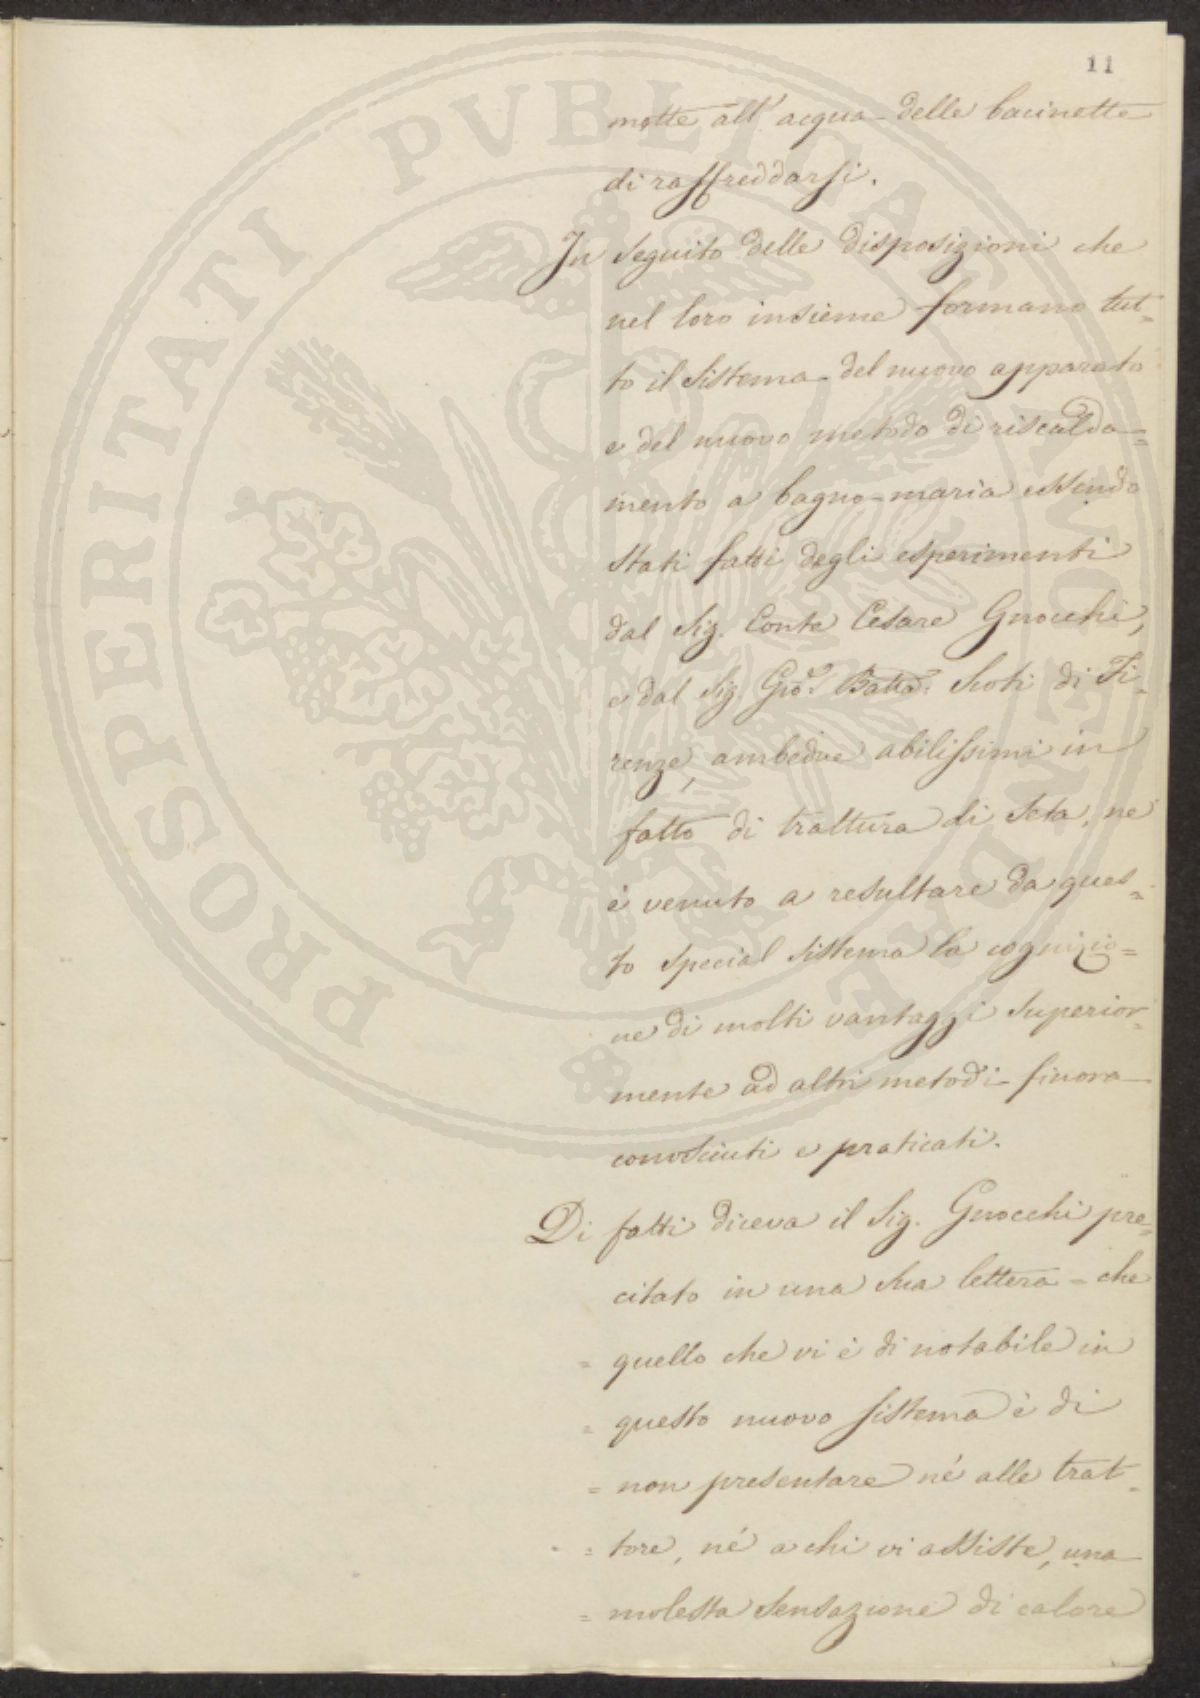 11
mette all'acqua delle bacinette
di raffreddarsi.
In seguito delle disposizioni che
nel loro insieme formano tut=
to il sistema del nuovo apparato
e del nuovo metodo di riscalda=
mento a bagno-maria essendo
stati fatti degli esperimenti
dal Sig. Conte Cesare Gnocchi,
e dal Sig. Gio. Batta. Scoti di Fi=
renze, ambedue abilissimi in
fatto di trattura di seta, ne
è venuto a resultare da ques=
to special sistema la cognizio=
ne di molti vantaggi superior=
mente ad altri metodi finora
conosciuti e praticati.
Di fatti diceva il Sig. Gnocchi pre=
citato in una sua lettera = che
= quello che vi è di notabile in
= questo nuovo sistema è di
= non presentare né alle trat=
= tore, né a chi vi assiste, una
= molesta sensazione di calore
PROSPERITATI PVBLICAE